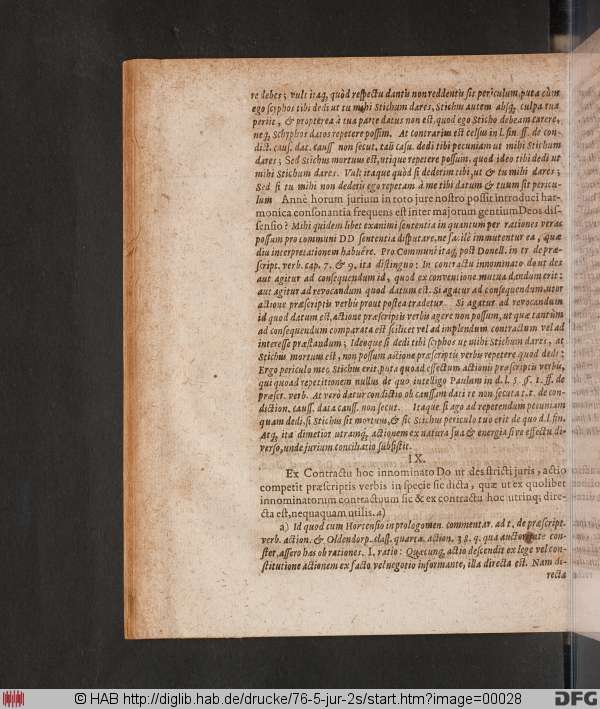 re debes; vult itaq, quòd respectu dantis non reddentis sit periculum, puta cùm
ego scyphos tibi dedi ut tu mihi Stichum dares, Stichus autem absq, culpa tua
periit, & propterea à tua parte datus non est, quod ego Sticho debeam carere,
neq, Schyphos datos repetere possim. At contrarium est Celsus in l. fin. ff. de con-
dict. caus. dat. causs non secut. tali casu. dedi tibi pecuniam ut mihi Stichum
dares; Sed Stichus mortuus est, utique repetere possum. quod ideo tibi dedi ut
mihi Stichum dares. Vult itaque quòd si dederim tibi, ut & tu mihi dares;
Sed si tu mihi non dederis ego repetam à me tibi datum & tuum sit pericu-
lum Annè horum jurium in toto jure nostro possit introduci har-
monica consonantia frequens est inter majorum gentium Deos dis-
sensio? Mihi quidem libet examini sententia in quantum per rationes veras
possum pro communi DD sententia disputare, ne immutentur ea, quæ
diu interpretationem habuêre. Pro Communi itaq, post Donell. in tr de præ-
script. verb. cap. 7. & 9. ita distinguo: In contractu innominato do ut des
aut agitur ad consequendum id, quod ex conventione mutua dandum erit:
aut agitur ad revocandum quod datum est. Si agatur ad consequendum, utor
actione præscriptis verbis prout postea tradetur. Si agatur ad revocandum
id quod datum est, actione præscriptis verbis agere non possum, ut quæ tantùm
ad consequendum comparata est scilicet vel ad implendum contractum vel ad
interesse præstandum; Ideoque si dedi tibi scyphos ut mihi Stichum dares, at
Stichus mortuus est, non possum actione præscriptis verbis repetere quod dedi:
Ergo periculo meo Stichus erit, puta quoad effectum actionis præscriptis verbis,
qui quoad repetitionem nullus de quo intelligo Paulum in d. l. 5. §. 1. ff. de
præscr. verb. At verò datur condictio ob caussam dati re non secuta t. t. de con-
diction. causs. data causs. non secut. Itaque si ago ad repetendum pecuniam
quam dedi, si Stichus sit mortuus, & sic Stichus periculo tuo erit de quo d. l. fin.
Atq, ita dimetior utramq, actionem ex natura sua & energia sive effectu di-
verso, unde jurium conciliatio subsistit.
IX.
Ex Contractu hoc innominato Do ut des stricti juris, actio
competit præscriptis verbis in specie sic dicta, quæ ut ex quolibet
innominatorum contractuum sic & ex contractu hoc utrinq; dire-
cta est, nequaquam utilis. a)
a) Id quod cum Hortensio in prologomen. commentar. ad t. de præscript.
verb. action. & Oldendorp. class. quarta. action. 38. q. qua auctoritate con-
stet, assero has ob rationes. I. ratio: Quæcunq, actio descendit ex lege vel con-
stitutione actionem ex facto vel negotio informante, illa directa est. Nam di-
recta
© HAB http://diglib.hab.de/drucke/76-5-jur-2s/start.htm?image=00028
DFG